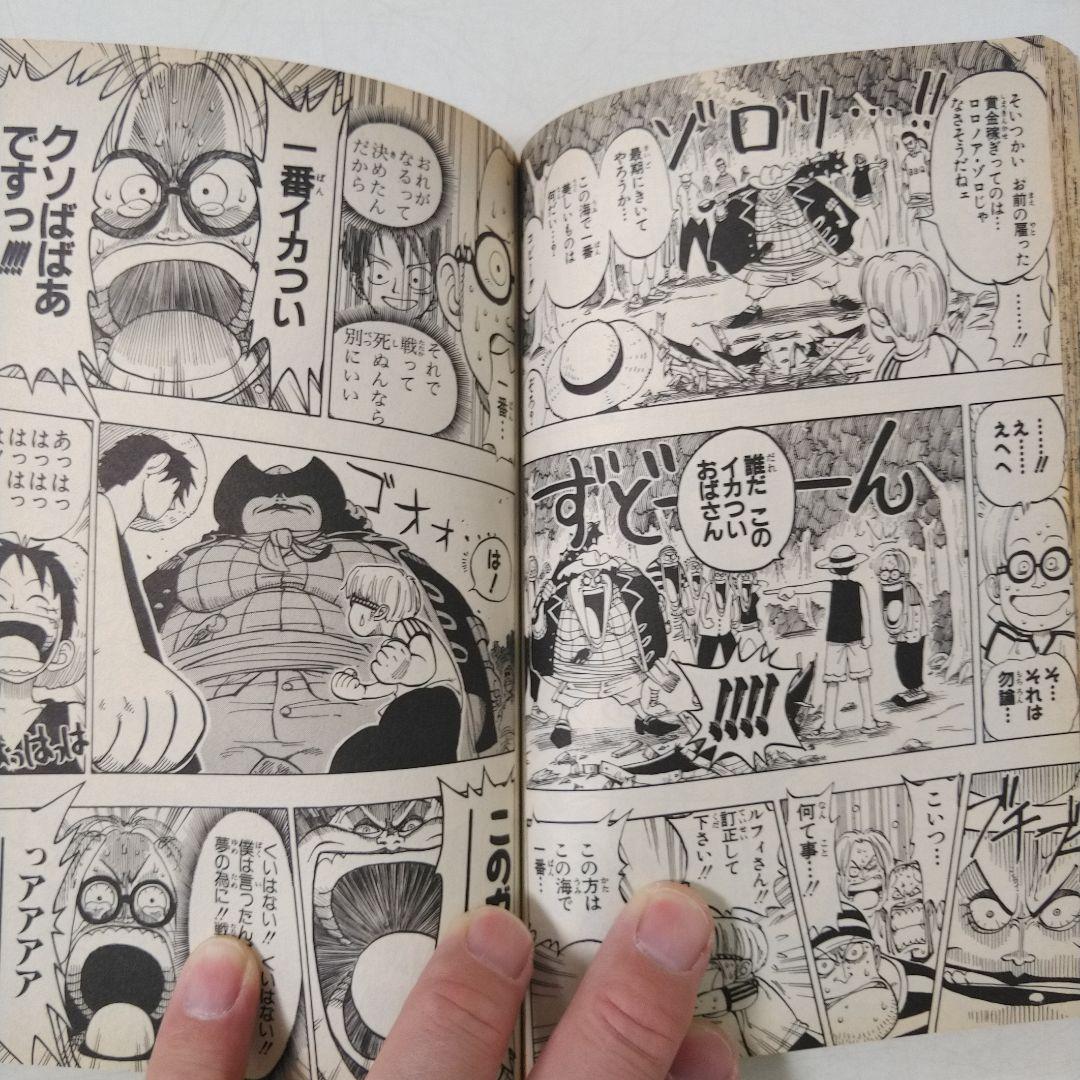 そいつかい お前の雇った
賞金稼ぎってのは…
ロロノア・ゾロじゃ
なさそうだねェ
……!!
ゾロリ…!!
最期にきいて
やろうか…
この海で一番
美しいものは
何だい…?
………!!
え………
えへへ
そ…
それは
勿論…
誰だ この
イカつい
おばさん
ずどーーーん
!!!!!
ブチブチ
こいつ…
何て事…!!
ルフィさん!!
訂正して
下さい!!
この方は
この海で
一番…
一番…
おれが
なるって
決めたん
だから
それで
戦って
死ぬんなら
別にいい
一番イカつい
クソばばあ
ですっ!!!!!
は!
ゴオオ…
あっはっ
はっはっ
はっはっ
このガ
くいはない!! くいはない!!
僕は言ったん
夢の為に!! 戦
っアアアア